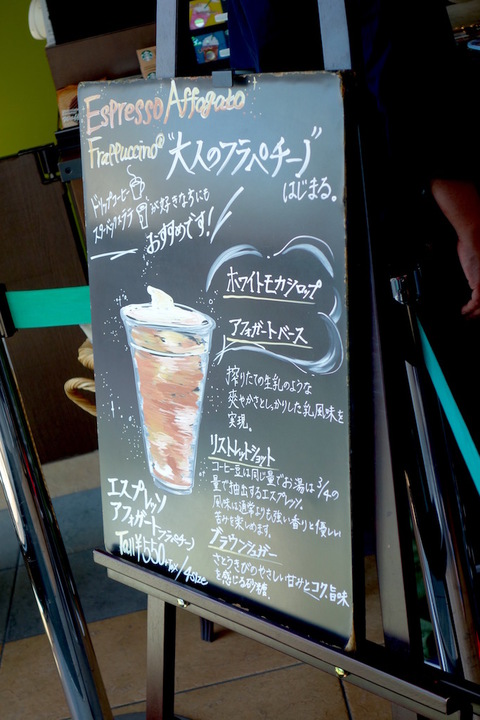 Espresso Affogato
Frappuccino®
"大人のフラペチーノ"
はじまる。
ドリップコーヒー
スターバックスラテ が好きな方にも
おすすめです!
ホワイトモカシロップ
アフォガートベース
搾りたての生乳のような
爽やかさとしっかりした乳風味を
実現。
リストレットショット
コーヒー豆は同じ量でお湯は3/4の
量で抽出するエスプレッソ。
風味は通常よりも強い香りと優しい
苦みを楽しめます。
ブラウンシュガー
さとうきびのやさしい甘みとコク旨味
を感じる砂糖。
エスプレッソ
アフォガートフラペチーノ
Tall ¥550+tax/4size